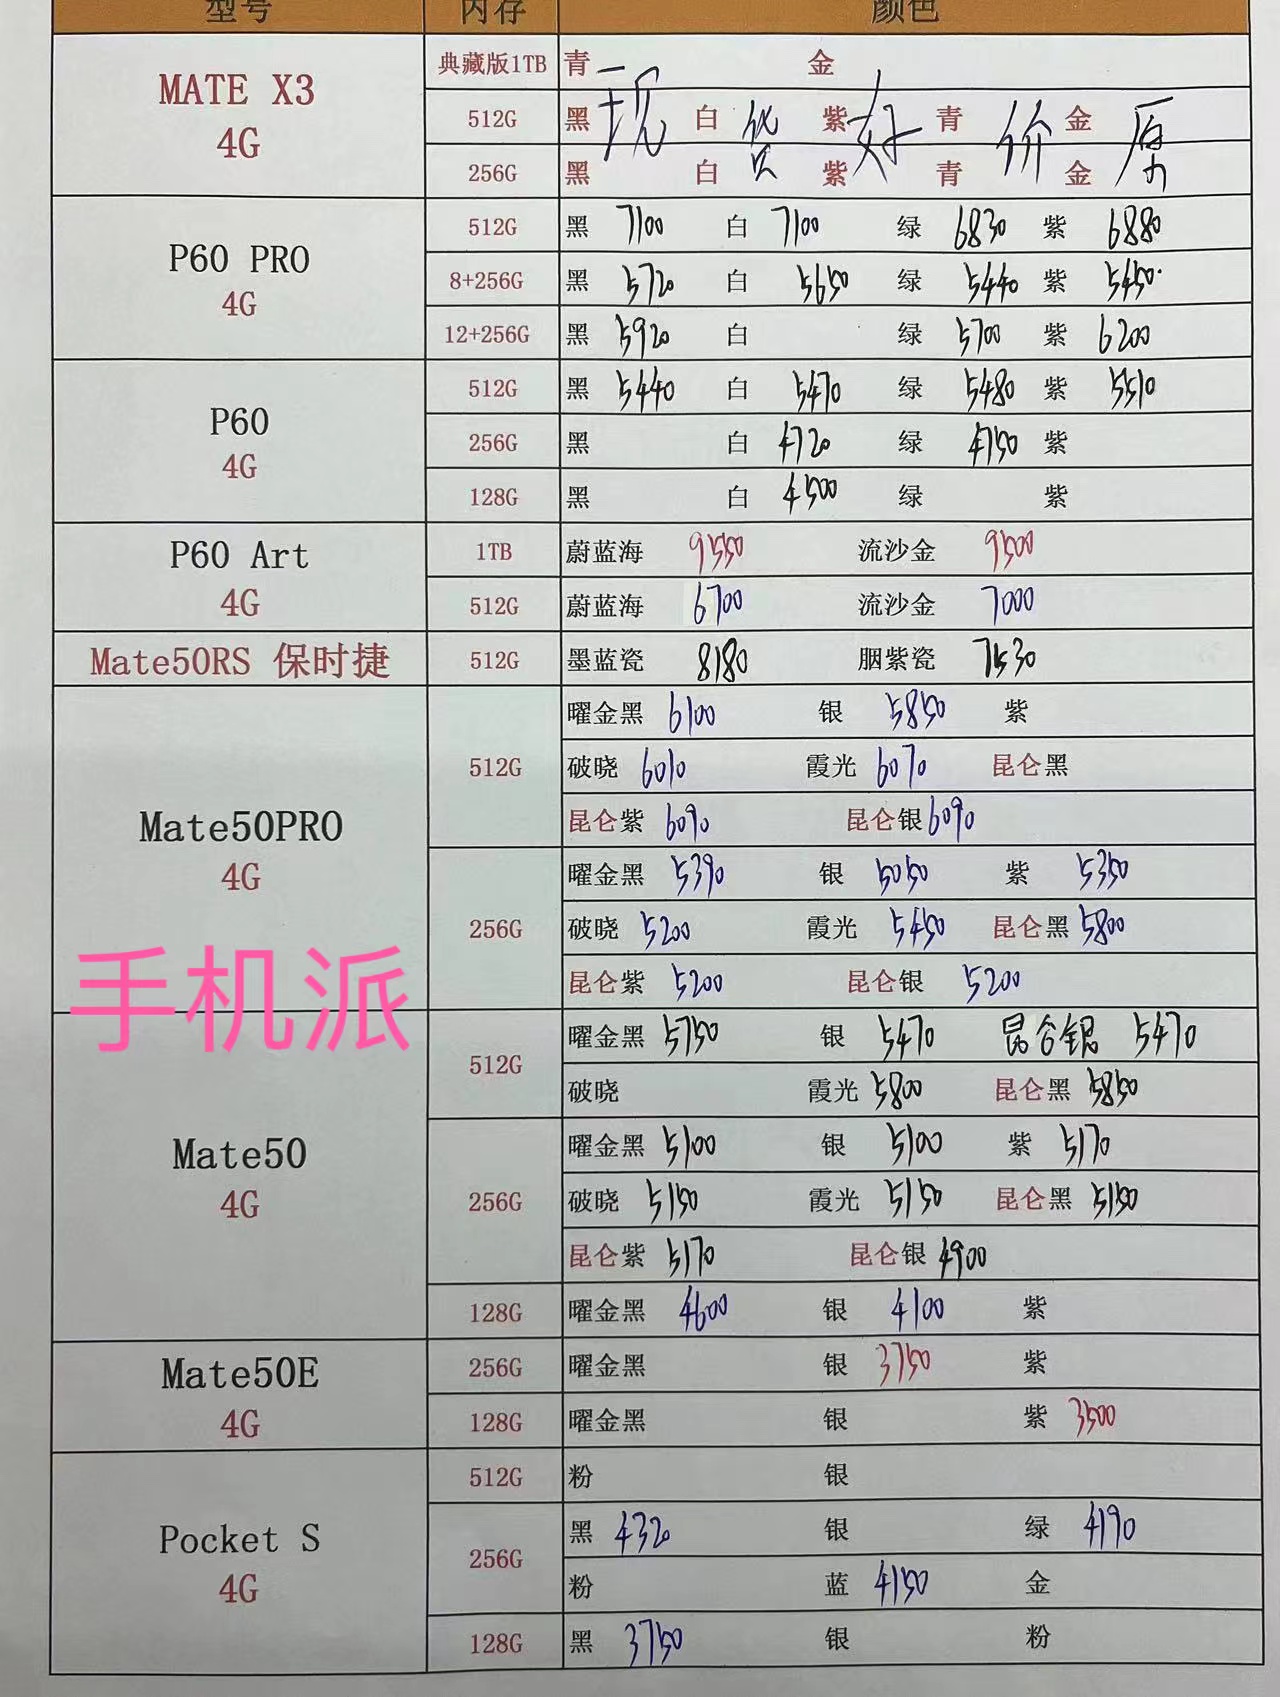 型号 内存 颜色
MATE X3
4G
典藏版1TB 青 金
512G 黑 白 紫 青 金
现货好价
256G 黑 白 紫 青 金
P60 PRO
4G
512G 黑 7100 白 7100 绿 6830 紫 6880
8+256G 黑 5720 白 5650 绿 5440 紫 5450
12+256G 黑 5920 白 绿 5700 紫 6200
P60
4G
512G 黑 5440 白 5470 绿 5480 紫 5510
256G 黑 白 4720 绿 4750 紫
128G 黑 白 4500 绿 紫
P60 Art
4G
1TB 蔚蓝海 9550 流沙金 9500
512G 蔚蓝海 6700 流沙金 7000
Mate50RS 保时捷 512G 墨蓝瓷 8180 胭紫瓷 7530
Mate50PRO
4G
512G 曜金黑 6100 银 5850 紫
破晓 6010 霞光 6070 昆仑黑
昆仑紫 6090 昆仑银 6090
256G 曜金黑 5390 银 5050 紫 5350
破晓 5200 霞光 5450 昆仑黑 5800
昆仑紫 5200 昆仑银 5200
手机派
Mate50
4G
512G 曜金黑 5750 银 5470 昆仑银 5470
破晓 霞光 5800 昆仑黑 5850
256G 曜金黑 5100 银 5100 紫 5170
破晓 5150 霞光 5150 昆仑黑 5150
昆仑紫 5170 昆仑银 4900
128G 曜金黑 4600 银 4100 紫
Mate50E
4G
256G 曜金黑 银 3750 紫
128G 曜金黑 银 紫 3500
Pocket S
4G
512G 粉 银
256G 黑 4320 银 绿 4190
粉 蓝 4150 金
128G 黑 3750 银 粉